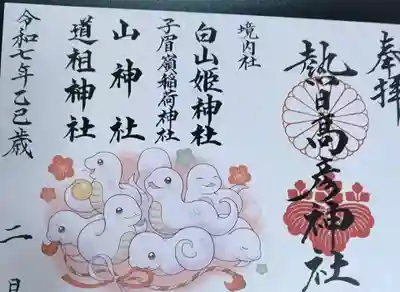 奉拝
熱日高彦神社
境内社
白山姫神社
子眉嶺稲荷神社
山神社
道祖神社
令和七年乙巳歳
二 日